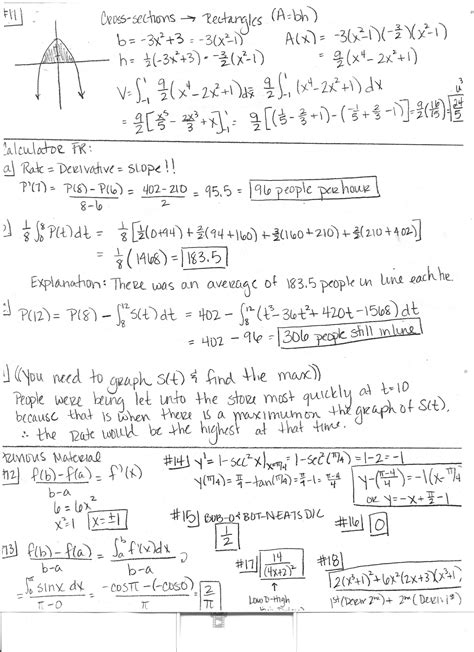 #11 Cross-sections → Rectangles (A=bh)
b = -3x²+3 = -3(x²-1)
A(x) = -3(x²-1)(-3/2)(x²-1)
h = 1/2(-3x²+3) = -3/2(x²-1)
= 9/2(x⁴-2x²+1)
V = ∫₋₁¹ 9/2(x⁴-2x²+1)dx = 9/2∫₋₁¹(x⁴-2x²+1)dx
= 9/2[x⁵/5 - 2x³/3 + x]₋₁¹ = 9/2[(1/5 - 2/3 + 1) - (-1/5 + 2/3 - 1)] = 9/2(16/15) = 24/5 u³
Calculator FR:
a) Rate = Derivative = Slope!!
P'(7) = P(8)-P(6)/8-6 = 402-210/2 = 95.5 = 96 people per hour
1/8∫₀⁸P(t)dt = 1/8[2/2(0+94) + 3/2(94+160) + 1/2(160+210) + 2/2(210+402)]
= 1/8(1468) = 183.5
Explanation: There was an average of 183.5 people in line each
P(12) = P(8) - ∫₈¹²S(t)dt = 402 - ∫₈¹²(t³-36t²+420t-1568)dt
= 402 - 96 = 306 people still in line
((You need to graph S(t) & find the max))
People were being let unto the store most quickly at t=10
because that is when there is a maximum on the graph of S(t).
∴ the Rate would be the highest at that time.
Previous Material
#12 f(b)-f(a)/b-a = f'(x)
6 = 6x²
x²=1 x=±1
#14 y' = 1-sec²x|x=π/4 = 1-sec²(π/4) = 1-2 = -1
y(π/4) = π/4 - tan(π/4) = π/4 - 1 = π-4/4
y-(π-4/4) = -1(x-π/4
or y=-x+π/2-1
#15 BOB-0 & BOT-N-EATS DIC
1/2
#16 0
#13 f(b)-f(a)/b-a = ∫ₐᵇf'(x)dx/b-a
= ∫₀^π sinx dx/π-0 = -cosπ-(-cos0)/π = 2/π
#17 14/(4x+2)²
↑
LowD-High
#18
2(x³+1)²+6x²(2x+3)(x³+1)
1st(Deriv 2nd) + 2nd(Deriv 1st)